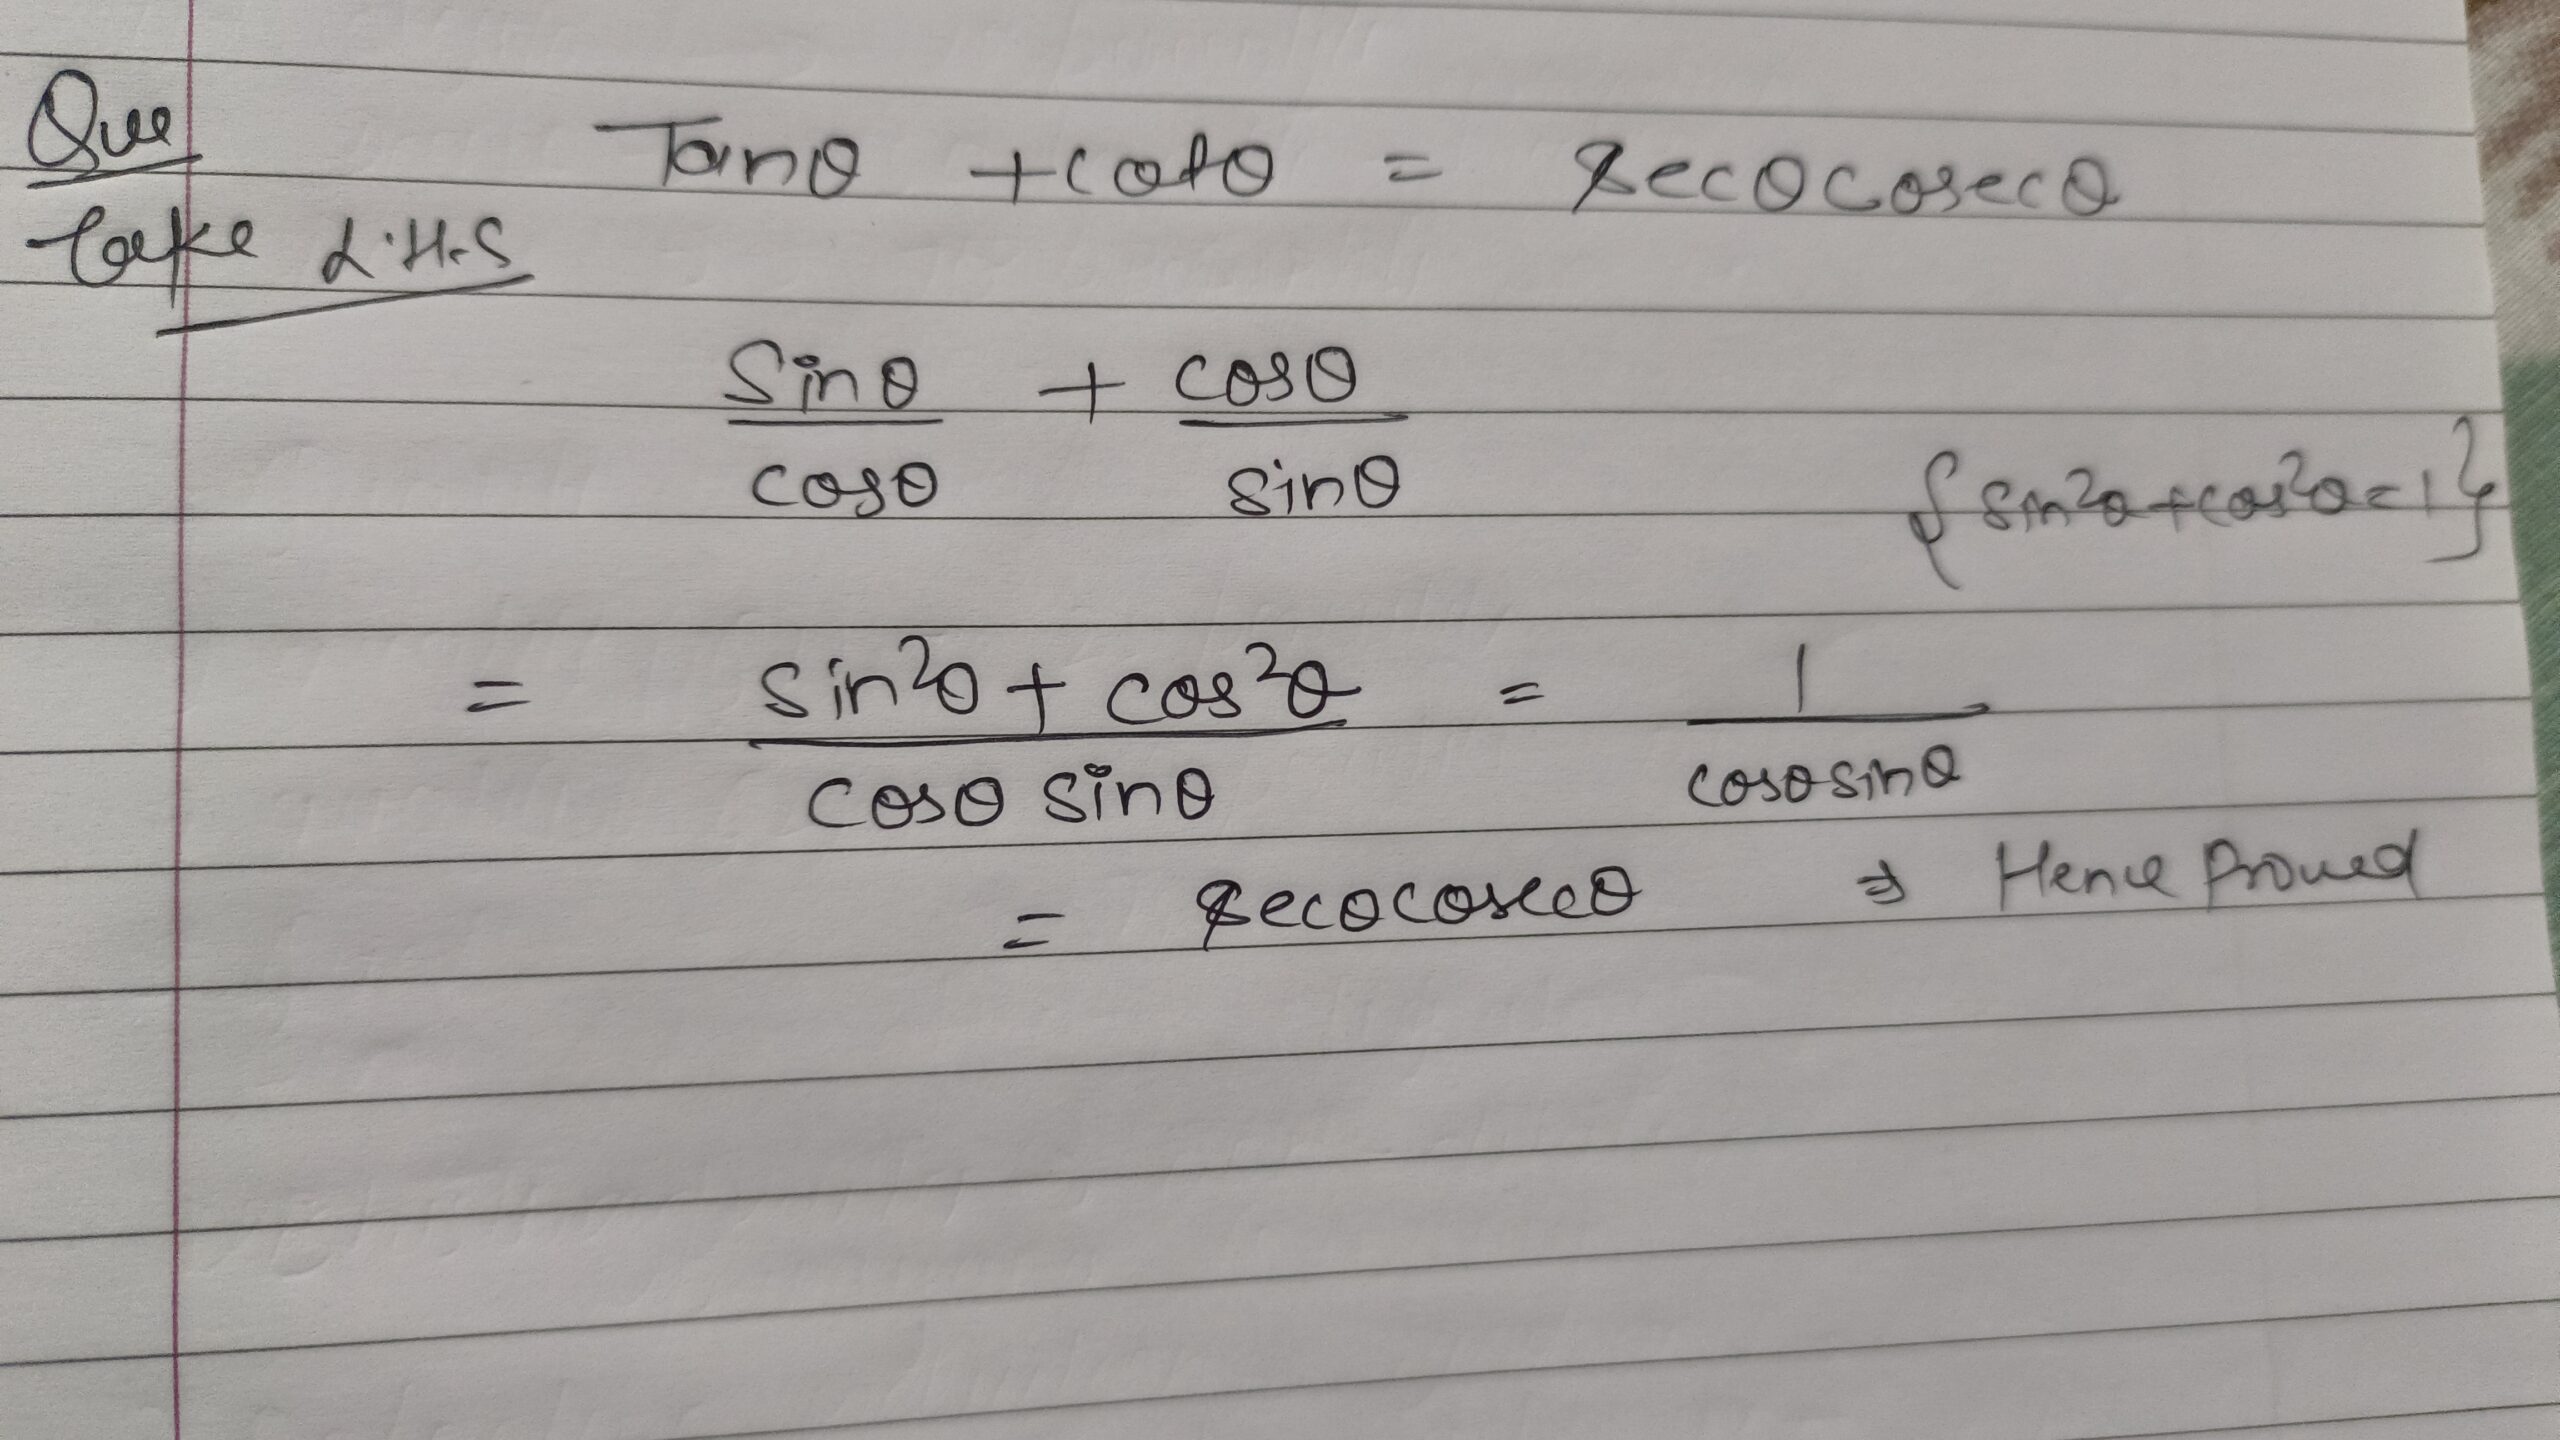 Que Tanθ + cotθ = secθcosecθ
take L.H.S
sinθ/cosθ + cosθ/sinθ
{sin²θ+cos²θ=1}
= sin²θ + cos²θ/cosθ sinθ = 1/cosθsinθ
= secθcosecθ ⇒ Hence Proved